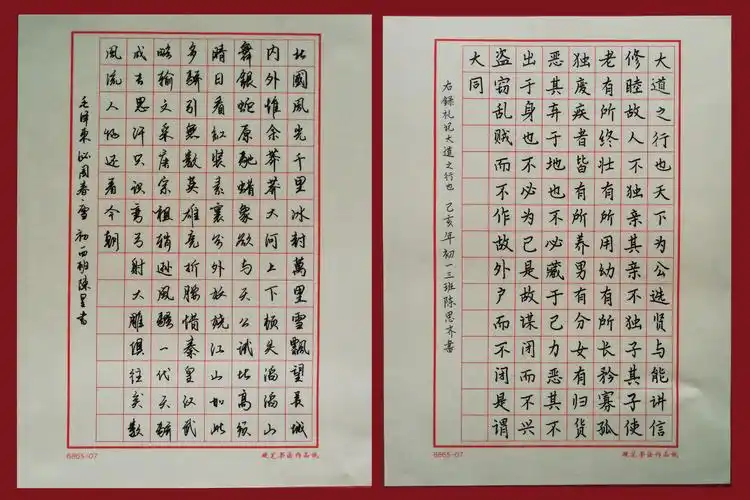 北國風光千里冰封萬里雪飄望長城
内外惟余莽莽大河上下頓失滔滔山
舞銀蛇原馳蠟象欲与天公試比高須
晴日看紅裝素裹分外妖嬈江山如此
多嬌引無數英雄竞折腰惜秦皇汉武
略輸文采唐宗祖稍遜風騷一代天驕
成吉思汗只识弯弓射大雕俱往矣数
風流人物还看今朝
毛泽東沁园春·雪 初一四班陳呈書
6865-07
硬笔书法作品纸
大道之行也天下为公选贤与能讲信
修睦故人不独亲其亲不独子其子使
老有所终壮有所用幼有所长矜寡孤
独废疾者皆有所养男有分女有归货
恶其弃于地也不必藏于己力恶其不
出于身也不必为己是故谋闭而不兴
盗窃乱贼而不作故外户而不闭是谓
大同
右録礼记大道之行也 己亥年初一三班陈思齐書
6865-07
硬笔书法作品纸